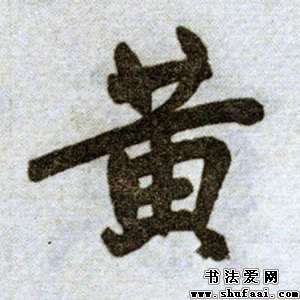 黄
书法爱网
www.shufaai.com